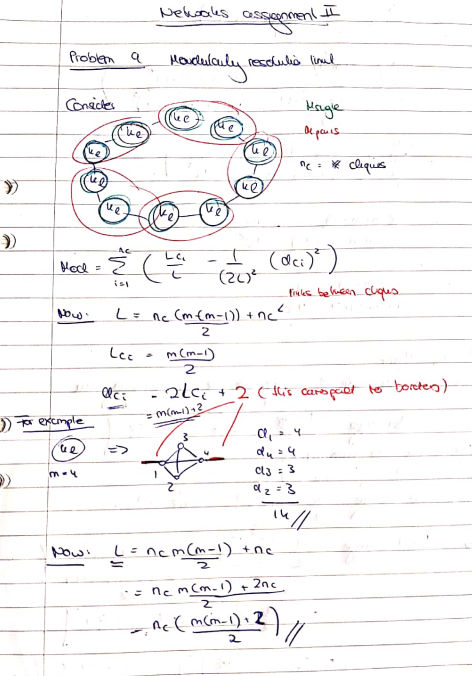 Networks assignment II
Problem 9 Modularity resolution limit
Consider
Single
Ke Ke
Ke Ke
pairs
Ke Ke
nc = # cliques
Ke Ke
Ke Ke
Mod = Σ_{i=1}^{nc} ( Lci/L - 1/(2L)² (dci)² )
links between cliques
Now: L = nc (m(m-1))/2 + nc
Lci = m(m-1)/2
dci = 2Lci + 2 (this correspond to borders)
= m(m-1)+2
For example
Ke => 1 2 3 4
m=4
d1 = 4
d4 = 4
d3 = 3
d2 = 3
14 //
Now: L = nc m(m-1)/2 + nc
= nc m(m-1) + 2nc / 2
= nc ( m(m-1) + 2 / 2 ) //